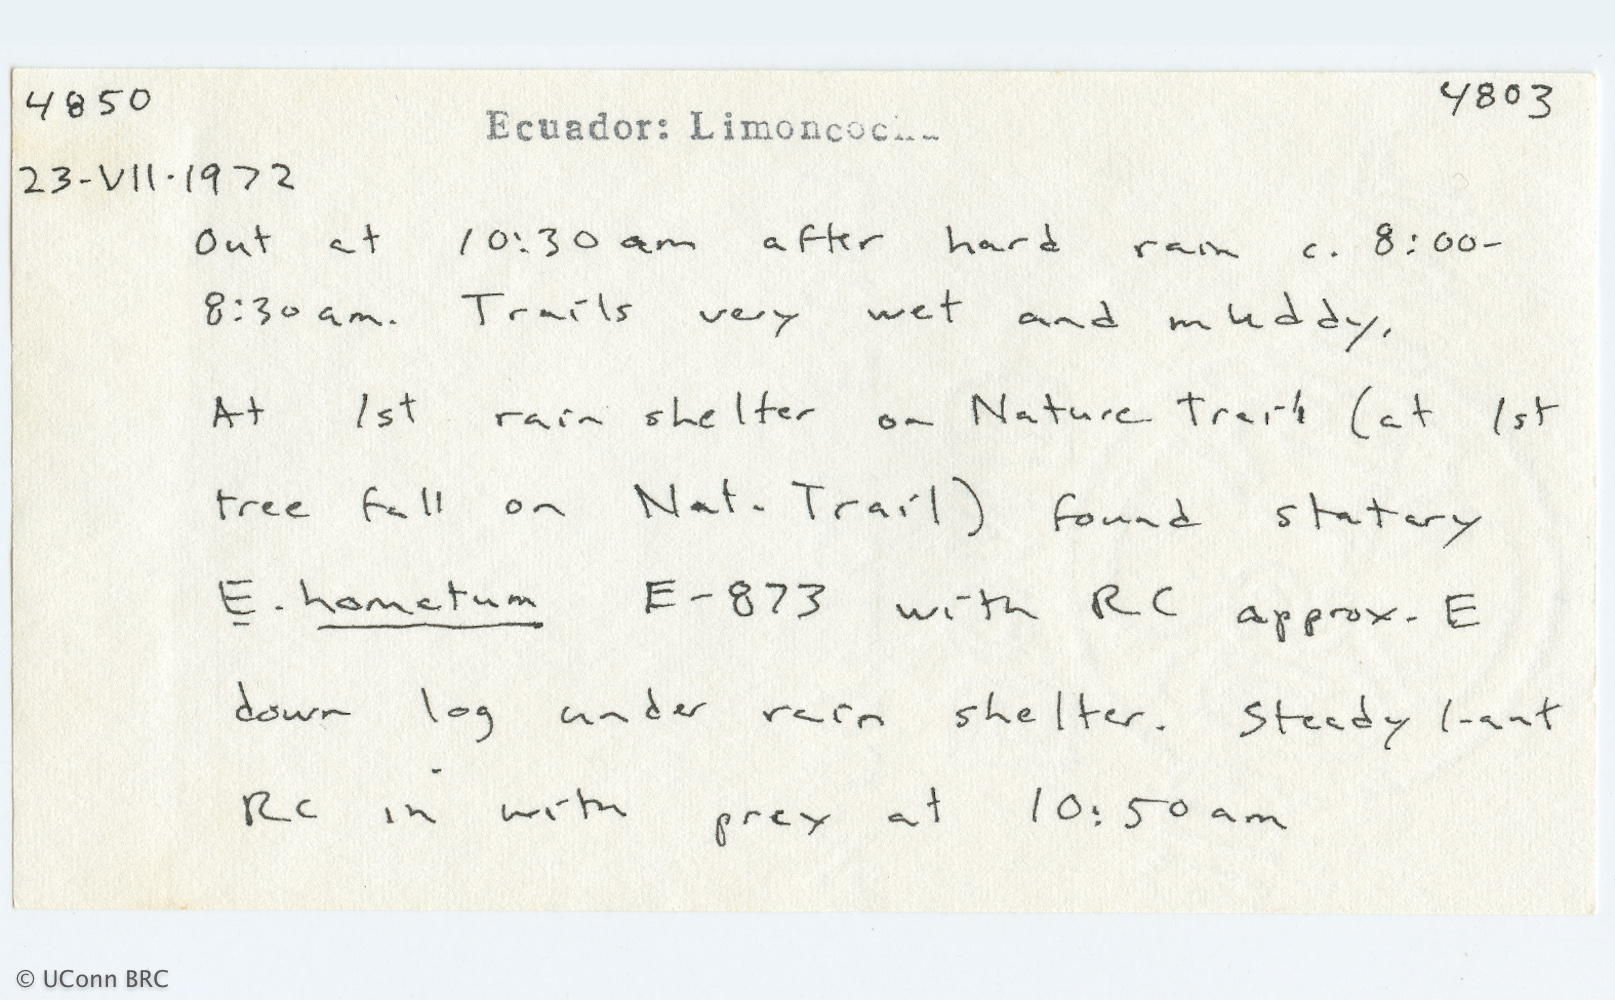 4850
4803
Ecuador: Limoncocha
23-VII-1972
Out at 10:30 am after hard rain c. 8:00-
8:30 am. Trails very wet and muddy.
At 1st rain shelter on Nature Trail (at 1st
tree fall on Nat. Trail) found statary
E. hamatum E-873 with RC approx. E
down log under rain shelter. Steady 1-ant
RC in with prey at 10:50 am
© UConn BRC